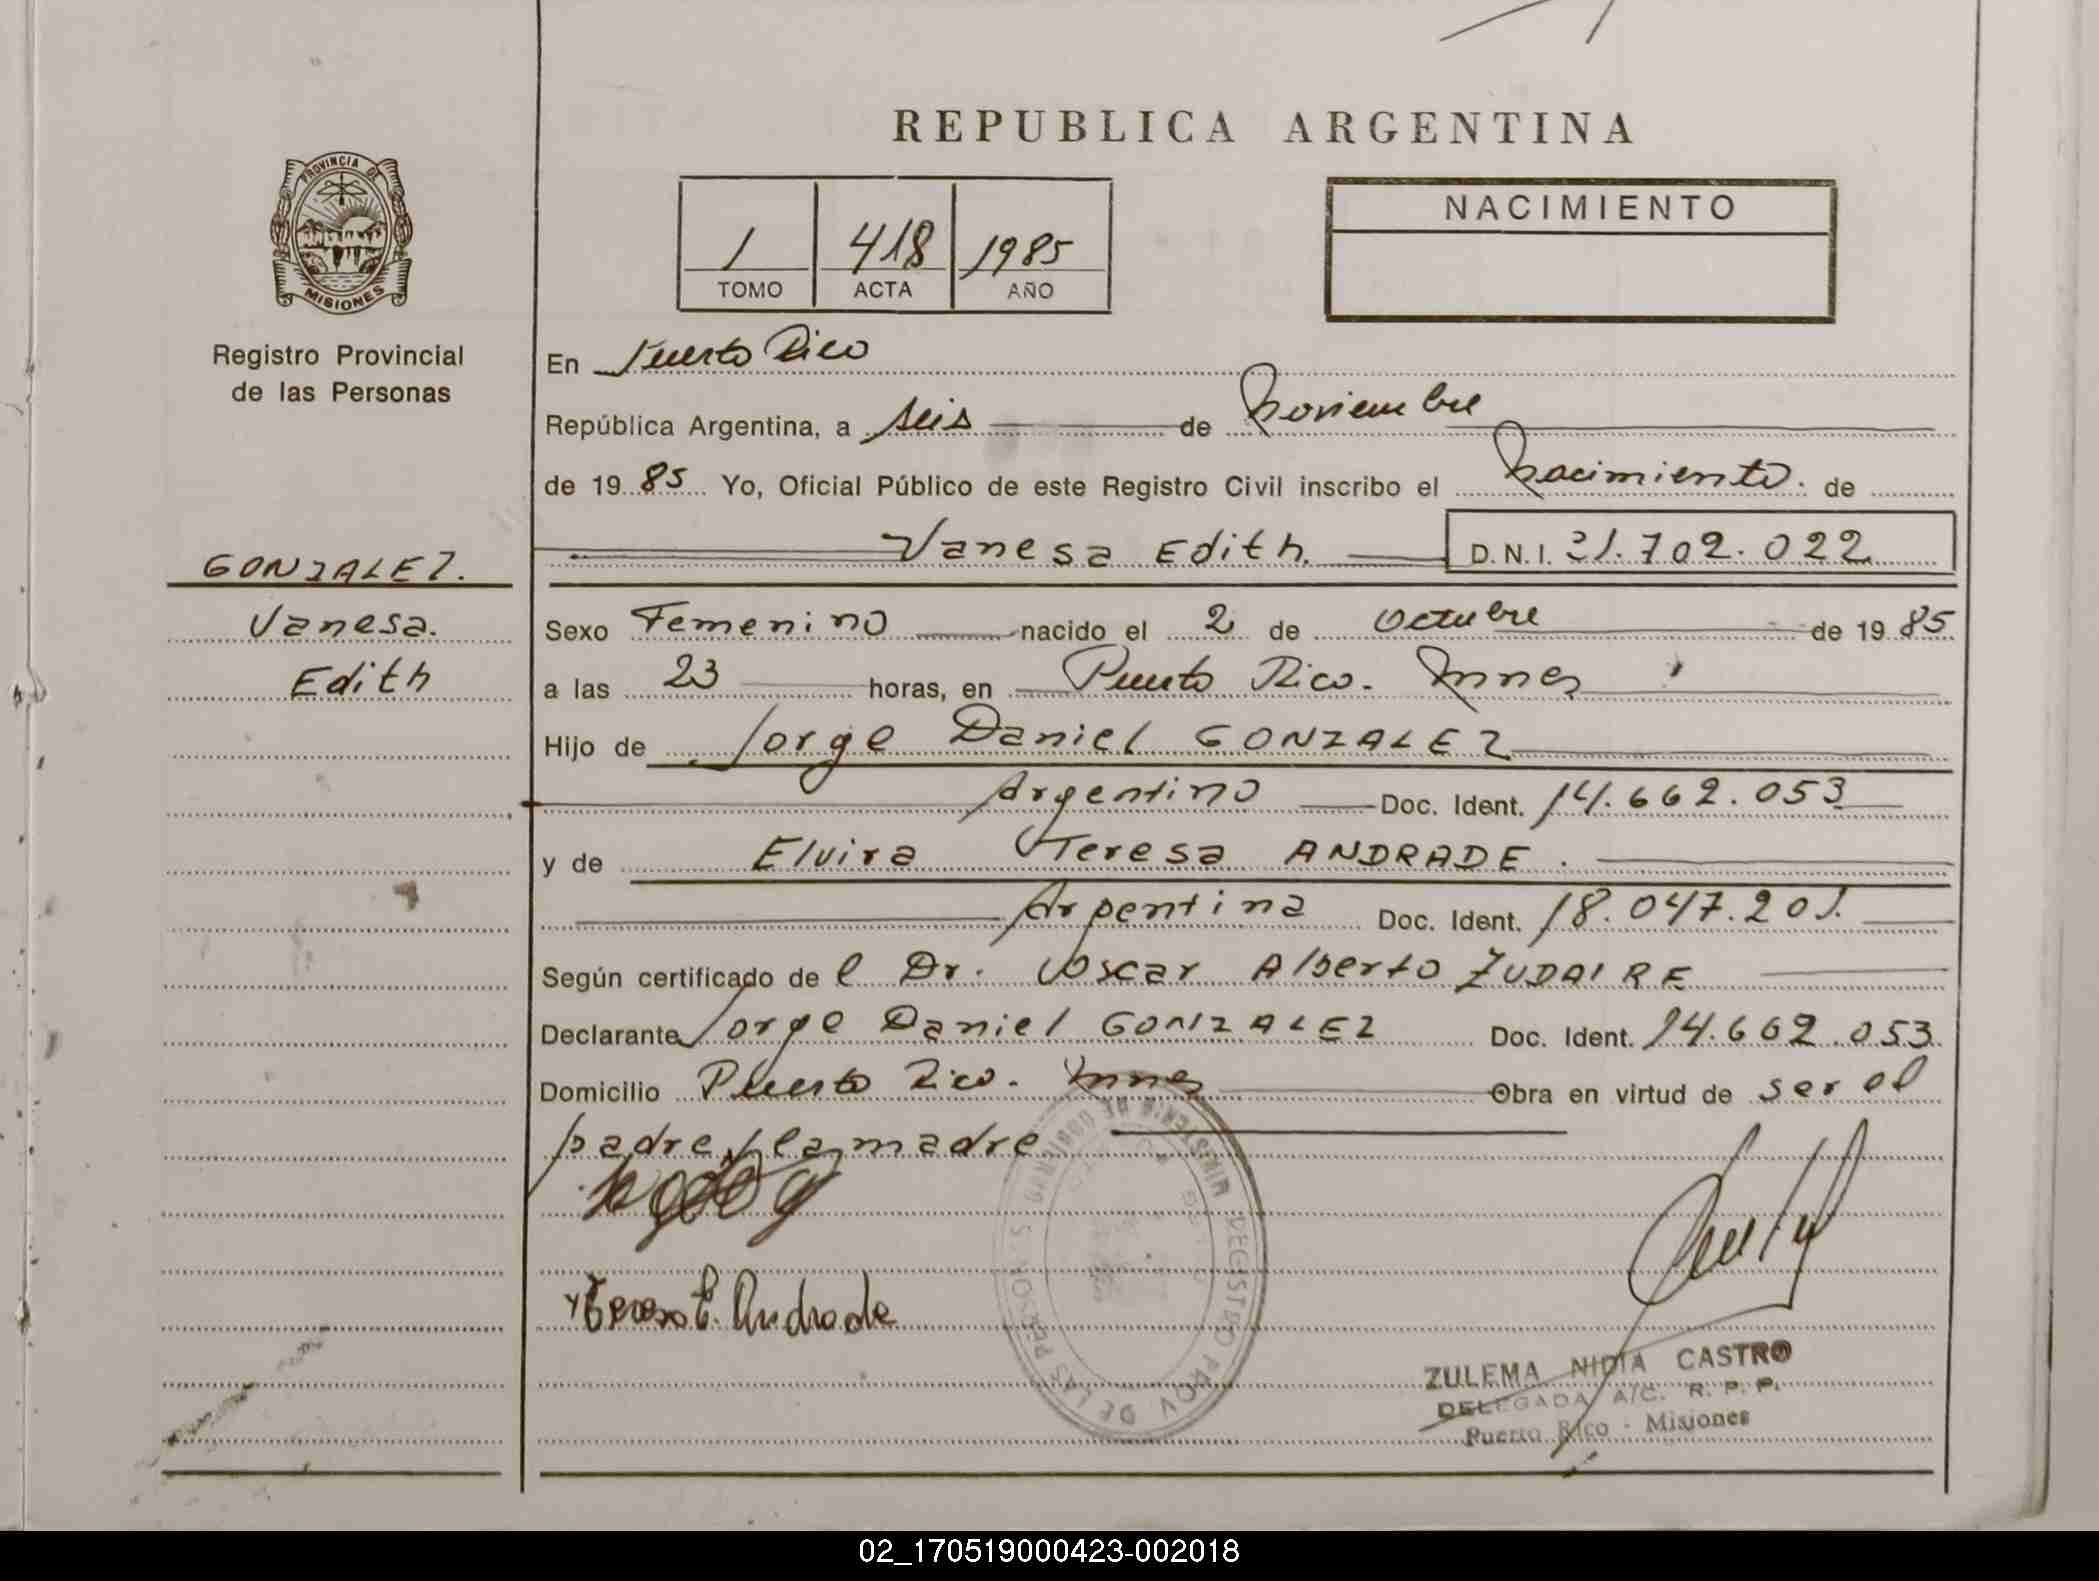 REPUBLICA ARGENTINA
PROVINCIA DE
MISIONES
Registro Provincial
de las Personas
1 418 1985
TOMO ACTA AÑO
NACIMIENTO
En Puerto Rico
República Argentina, a seis de noviembre
de 1985 Yo, Oficial Público de este Registro Civil inscribo el nacimiento. de
Vanesa Edith. D.N.I. 31.702.022
GONZALEZ.
Vanesa.
Edith
Sexo Femenino nacido el 2 de Octubre de 1985
a las 23 horas, en Puerto Rico. Mnes
Hijo de Jorge Daniel GONZALEZ
Argentino Doc. Ident. 14.662.053
y de Elvira Teresa ANDRADE.
Argentina Doc. Ident. 18.047.201.
Según certificado de l Dr. Oscar Alberto ZUDAIRE
Declarante Jorge Daniel GONZALEZ Doc. Ident. 14.662.053
Domicilio Puerto Rico. Mnes Obra en virtud de ser el
padre y la madre
MINISTERIO DE GOBIERNO
REGISTRO PROV. DE LAS PERSONAS
Teresa E. Andrade
ZULEMA NIDIA CASTRO
DELEGADA A/C. R. P. P.
Puerto Rico - Misiones
02_170519000423-002018